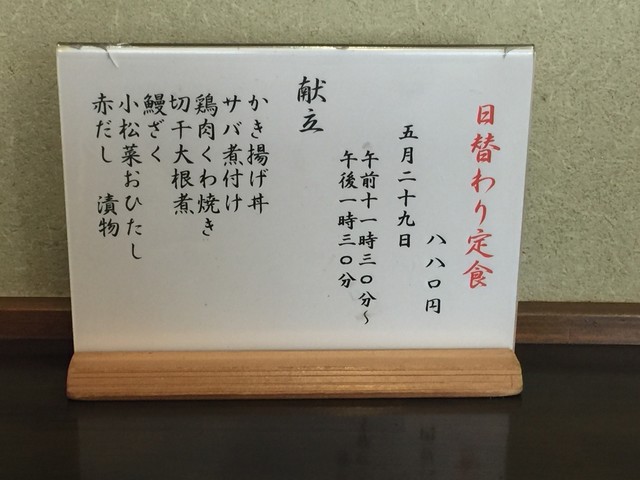 日替わり定食
八八〇円
五月二十九日
午前十一時三〇分〜
午後一時三〇分
献立
かき揚げ丼
サバ煮付け
鶏肉くわ焼き
切干大根煮
鰻ざく
小松菜おひたし
赤だし　漬物